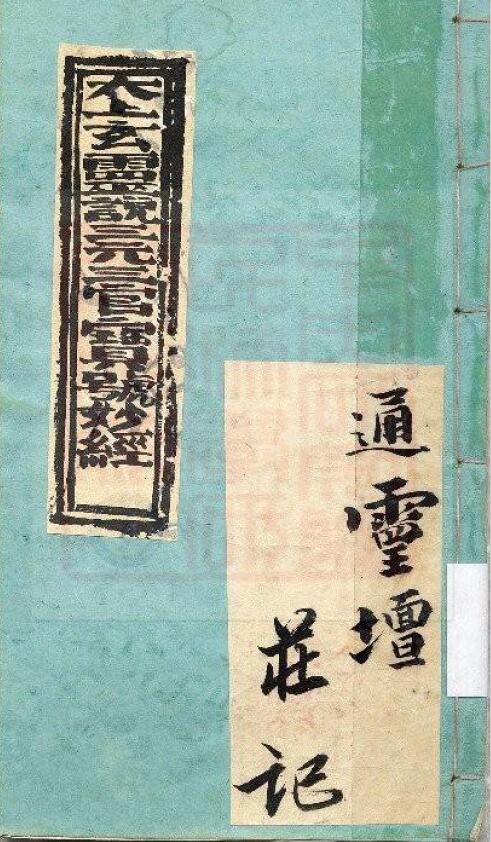 通靈壇
莊記
太上玄靈說三元三官寶號妙經